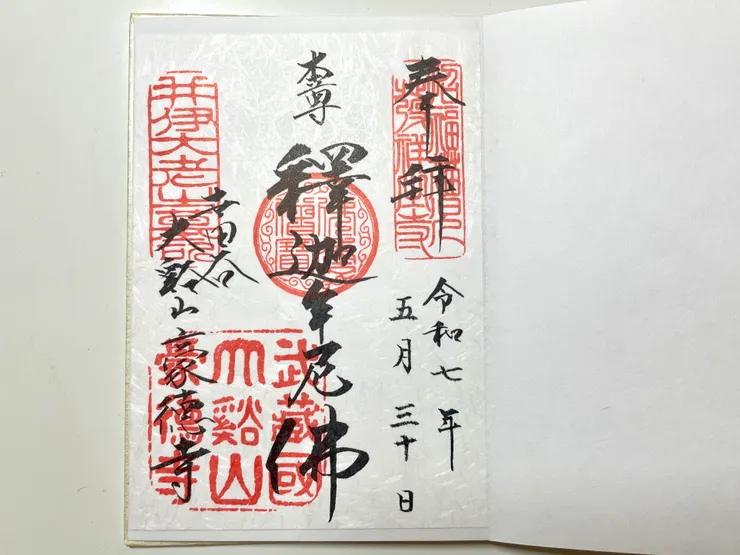 奉拝
令和七年
五月三十日
本尊
釋迦牟尼佛
世田谷
大谿山豪徳寺
井伊大老
武藏國
大谿山
豪德寺